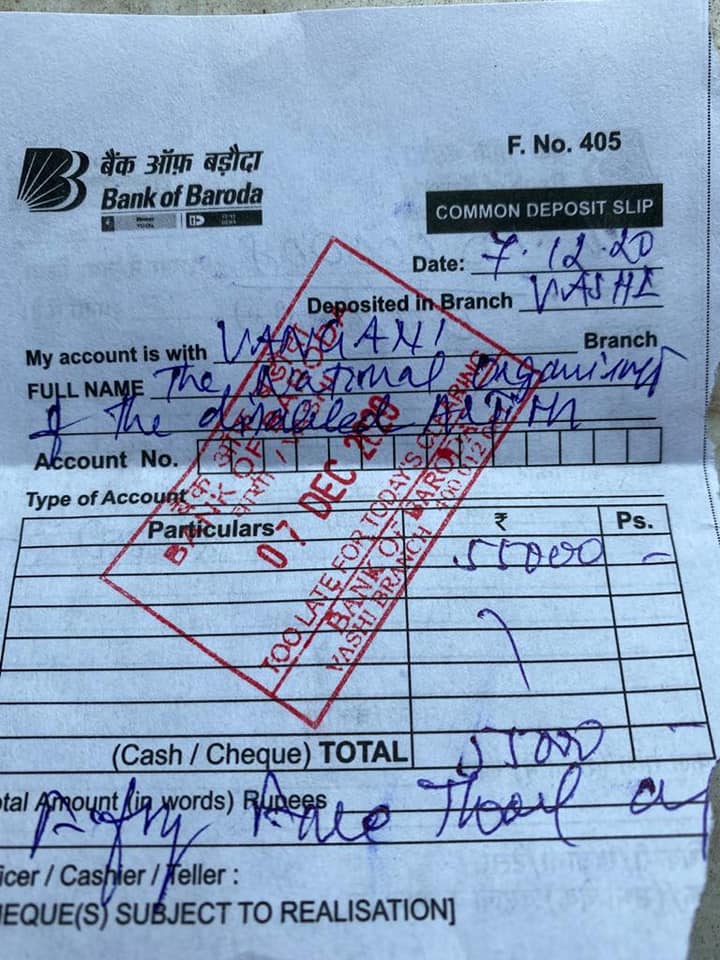 बैंक ऑफ़ बड़ौदा
Bank of Baroda
F. No. 405
COMMON DEPOSIT SLIP
Date: 7.12.20
Deposited in Branch VASHI
My account is with VANGANI Branch
FULL NAME The National Organisat
of the disabled
Account No.
Type of Account
Particulars ₹ Ps.
55000 -
(Cash / Cheque) TOTAL 55000 -
tal Amount (in words) Rupees
Fifty Five
icer / Cashier / Teller :
HEQUE(S) SUBJECT TO REALISATION]
BANK OF BARODA
07 DEC 2020
TOO LATE FOR TODAY'S CLEARING
BANK OF BARODA
VASHI BRANCH